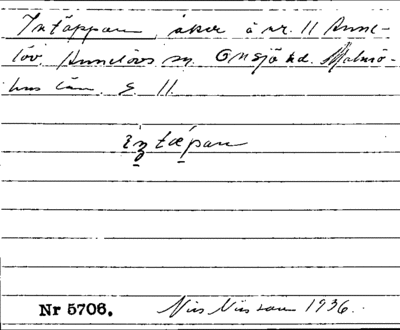 Intäppan, åker å nr. 11 Anne-
löv. Annelövs sn. Onsjö hd. Malmö-
hus län. S. 11.
Nr 5706. Nils Nilsson 1936.